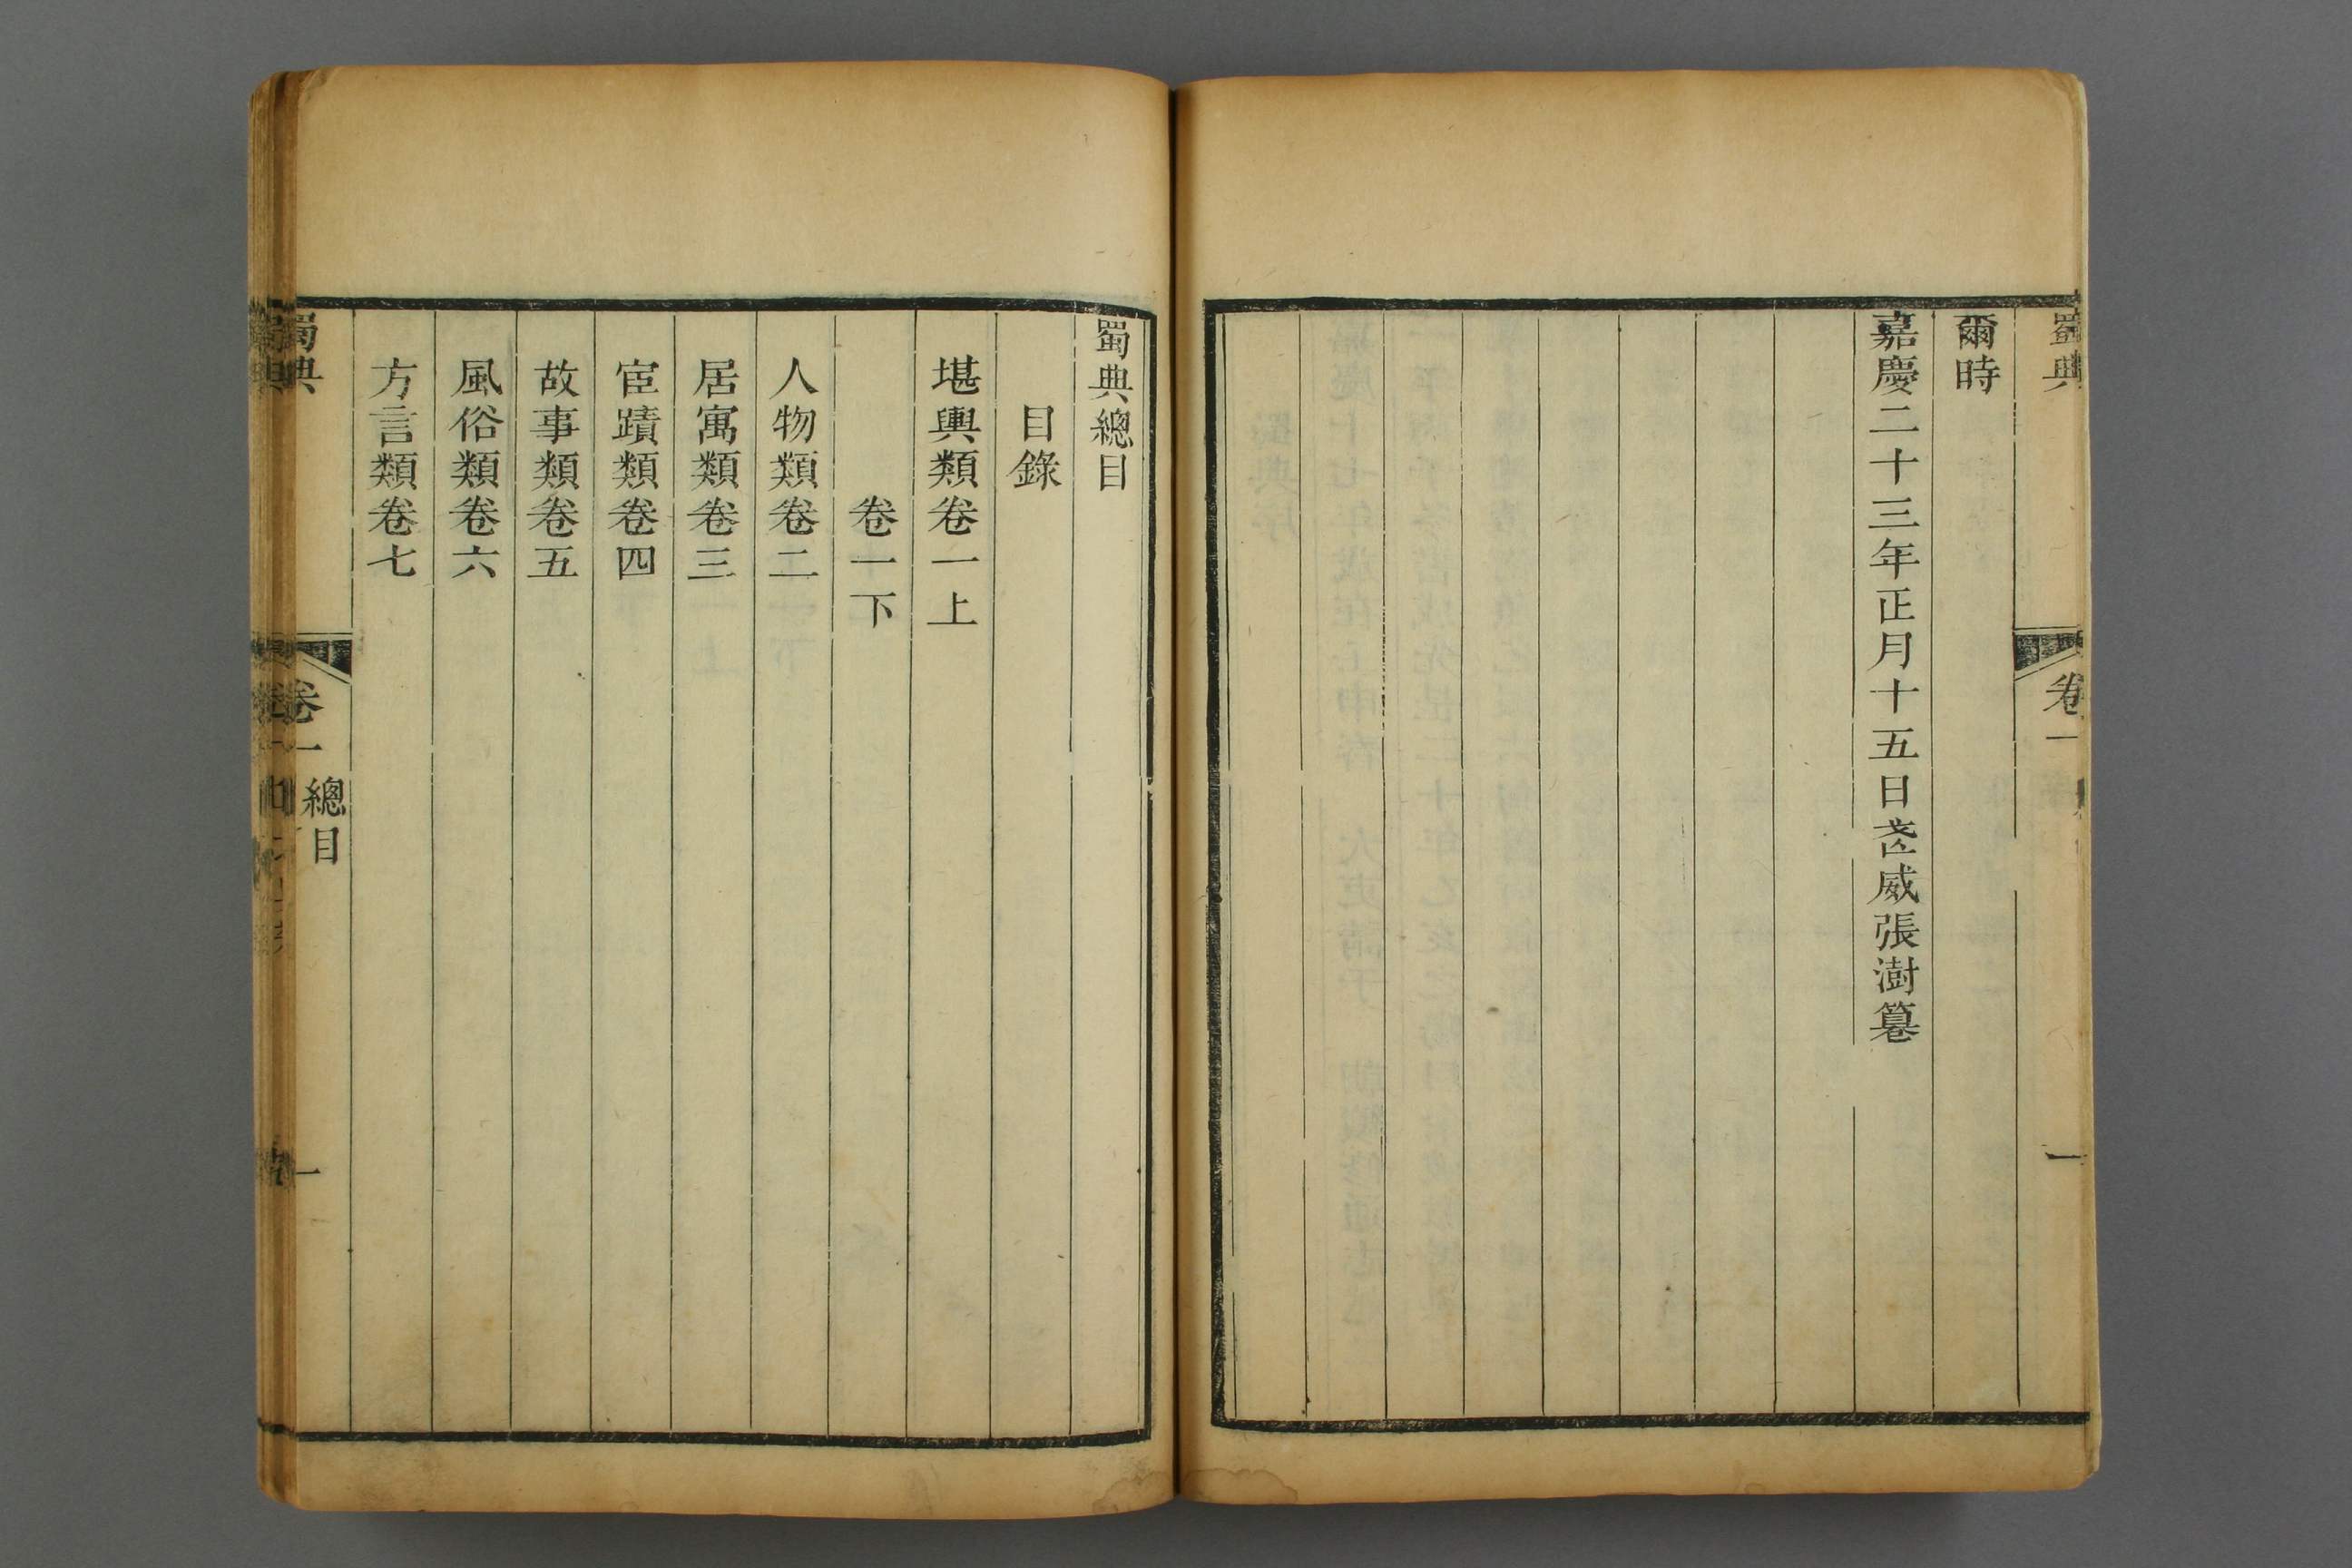 蜀典
卷一
一
爾時
嘉慶二十三年正月十五日武威張澍篹
蜀典總目
目錄
堪輿類卷一上
卷一下
人物類卷二
居寓類卷三
宦蹟類卷四
故事類卷五
風俗類卷六
方言類卷七
蜀典
卷一
總目
一